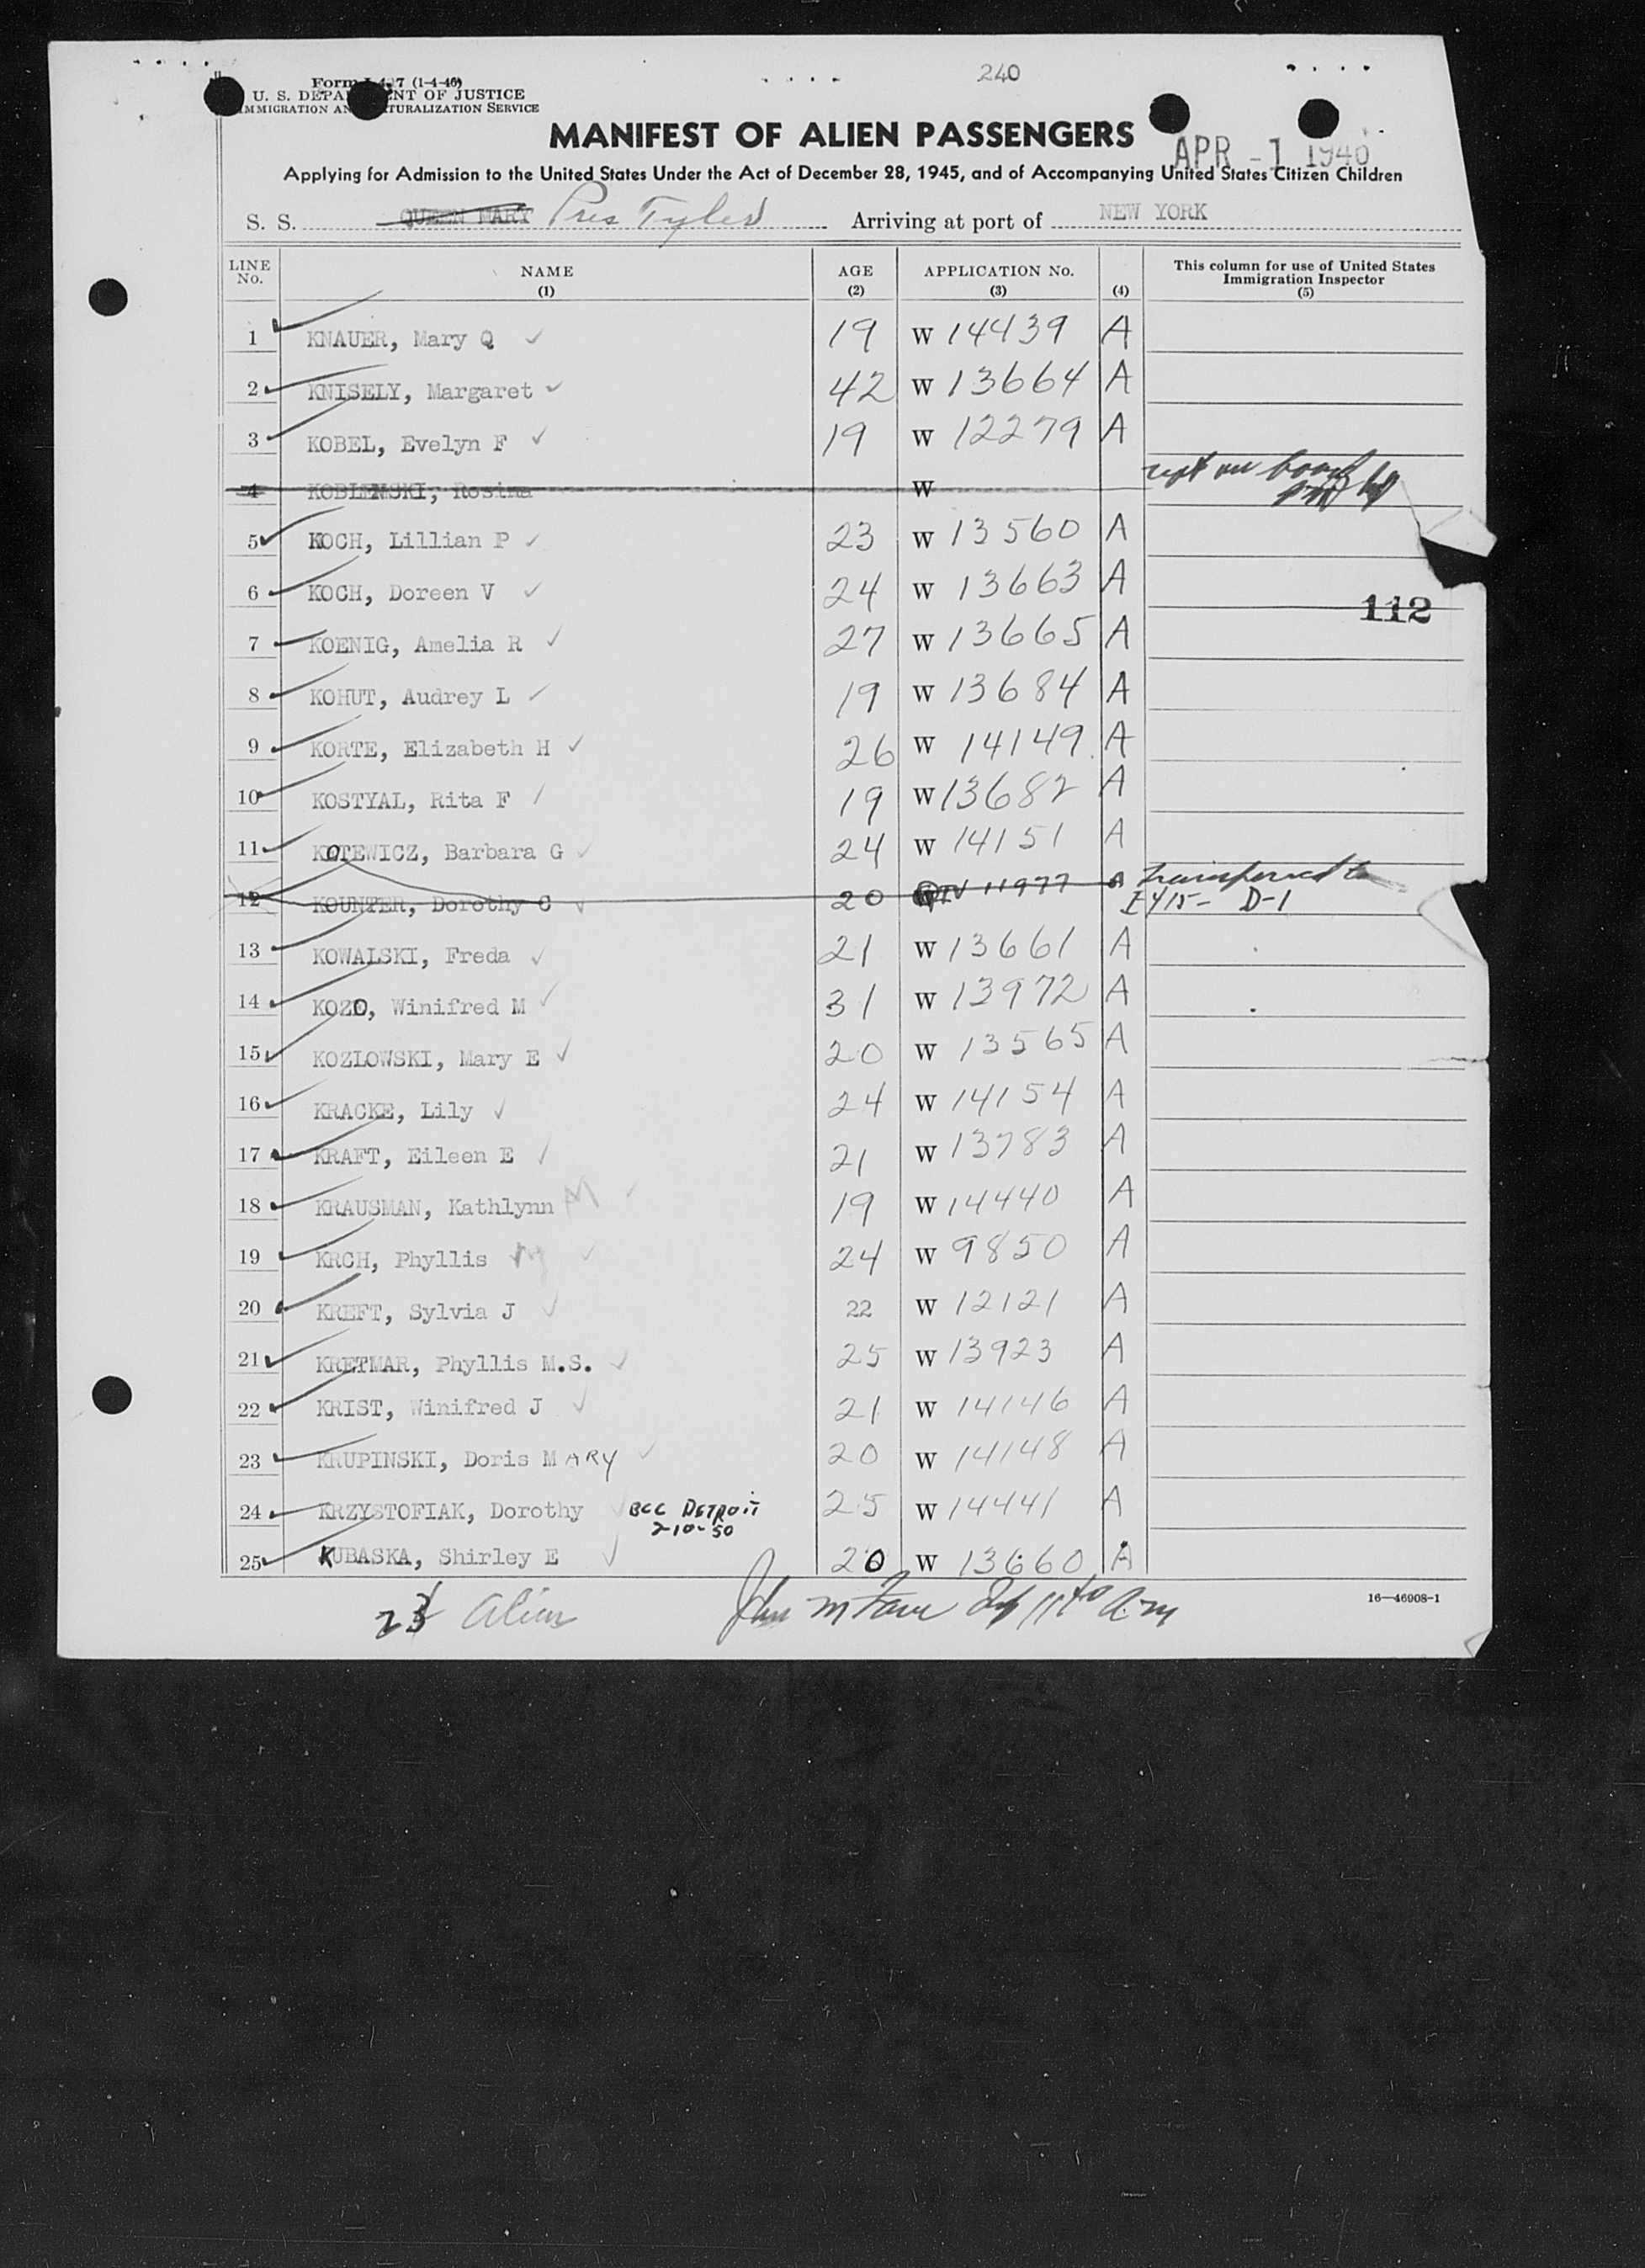 240
Form I-417 (1-4-46)
U. S. DEPARTMENT OF JUSTICE
IMMIGRATION AND NATURALIZATION SERVICE
MANIFEST OF ALIEN PASSENGERS
APR -1 1946
Applying for Admission to the United States Under the Act of December 28, 1945, and of Accompanying United States Citizen Children
S. S. QUEEN MARY Pres Tyler Arriving at port of NEW YORK
LINE No. NAME (1) AGE (2) APPLICATION No. (3) (4) This column for use of United States Immigration Inspector (5)
1 KNAUER, Mary Q 19 W 14439 A
2 KNISELY, Margaret 42 W 13664 A
3 KOBEL, Evelyn F 19 W 12279 A
4 KOBLEMSKI, Rosina W not on board
5 KOCH, Lillian P 23 W 13560 A
6 KOCH, Doreen V 24 W 13663 A
112
7 KOENIG, Amelia R 27 W 13665 A
8 KOHUT, Audrey L 19 W 13684 A
9 KORTE, Elizabeth H 26 W 14149 A
10 KOSTYAL, Rita F 19 W 13682 A
11 KOTEWICZ, Barbara G 24 W 14151 A
12 KOUNTER, Dorothy C 20 11977 A transferred to
I 415- D-1
13 KOWALSKI, Freda 21 W 13661 A
14 KOZO, Winifred M 31 W 13972 A
15 KOZLOWSKI, Mary E 20 W 13565 A
16 KRACKE, Lily 24 W 14154 A
17 KRAFT, Eileen E 21 W 13783 A
18 KRAUSMAN, Kathlynn M 19 W 14440 A
19 KRCH, Phyllis 24 W 9850 A
20 KREFT, Sylvia J 22 W 12121 A
21 KRETMAR, Phyllis M.S. 25 W 13923 A
22 KRIST, Winifred J 21 W 14146 A
23 KRUPINSKI, Doris MARY 20 W 14148 A
24 KRZYSTOFIAK, Dorothy BCC DETROIT 25 W 14441 A
2-10-50
25 KUBASKA, Shirley E 20 W 13660 A
23 Alien John M
16—46908-1